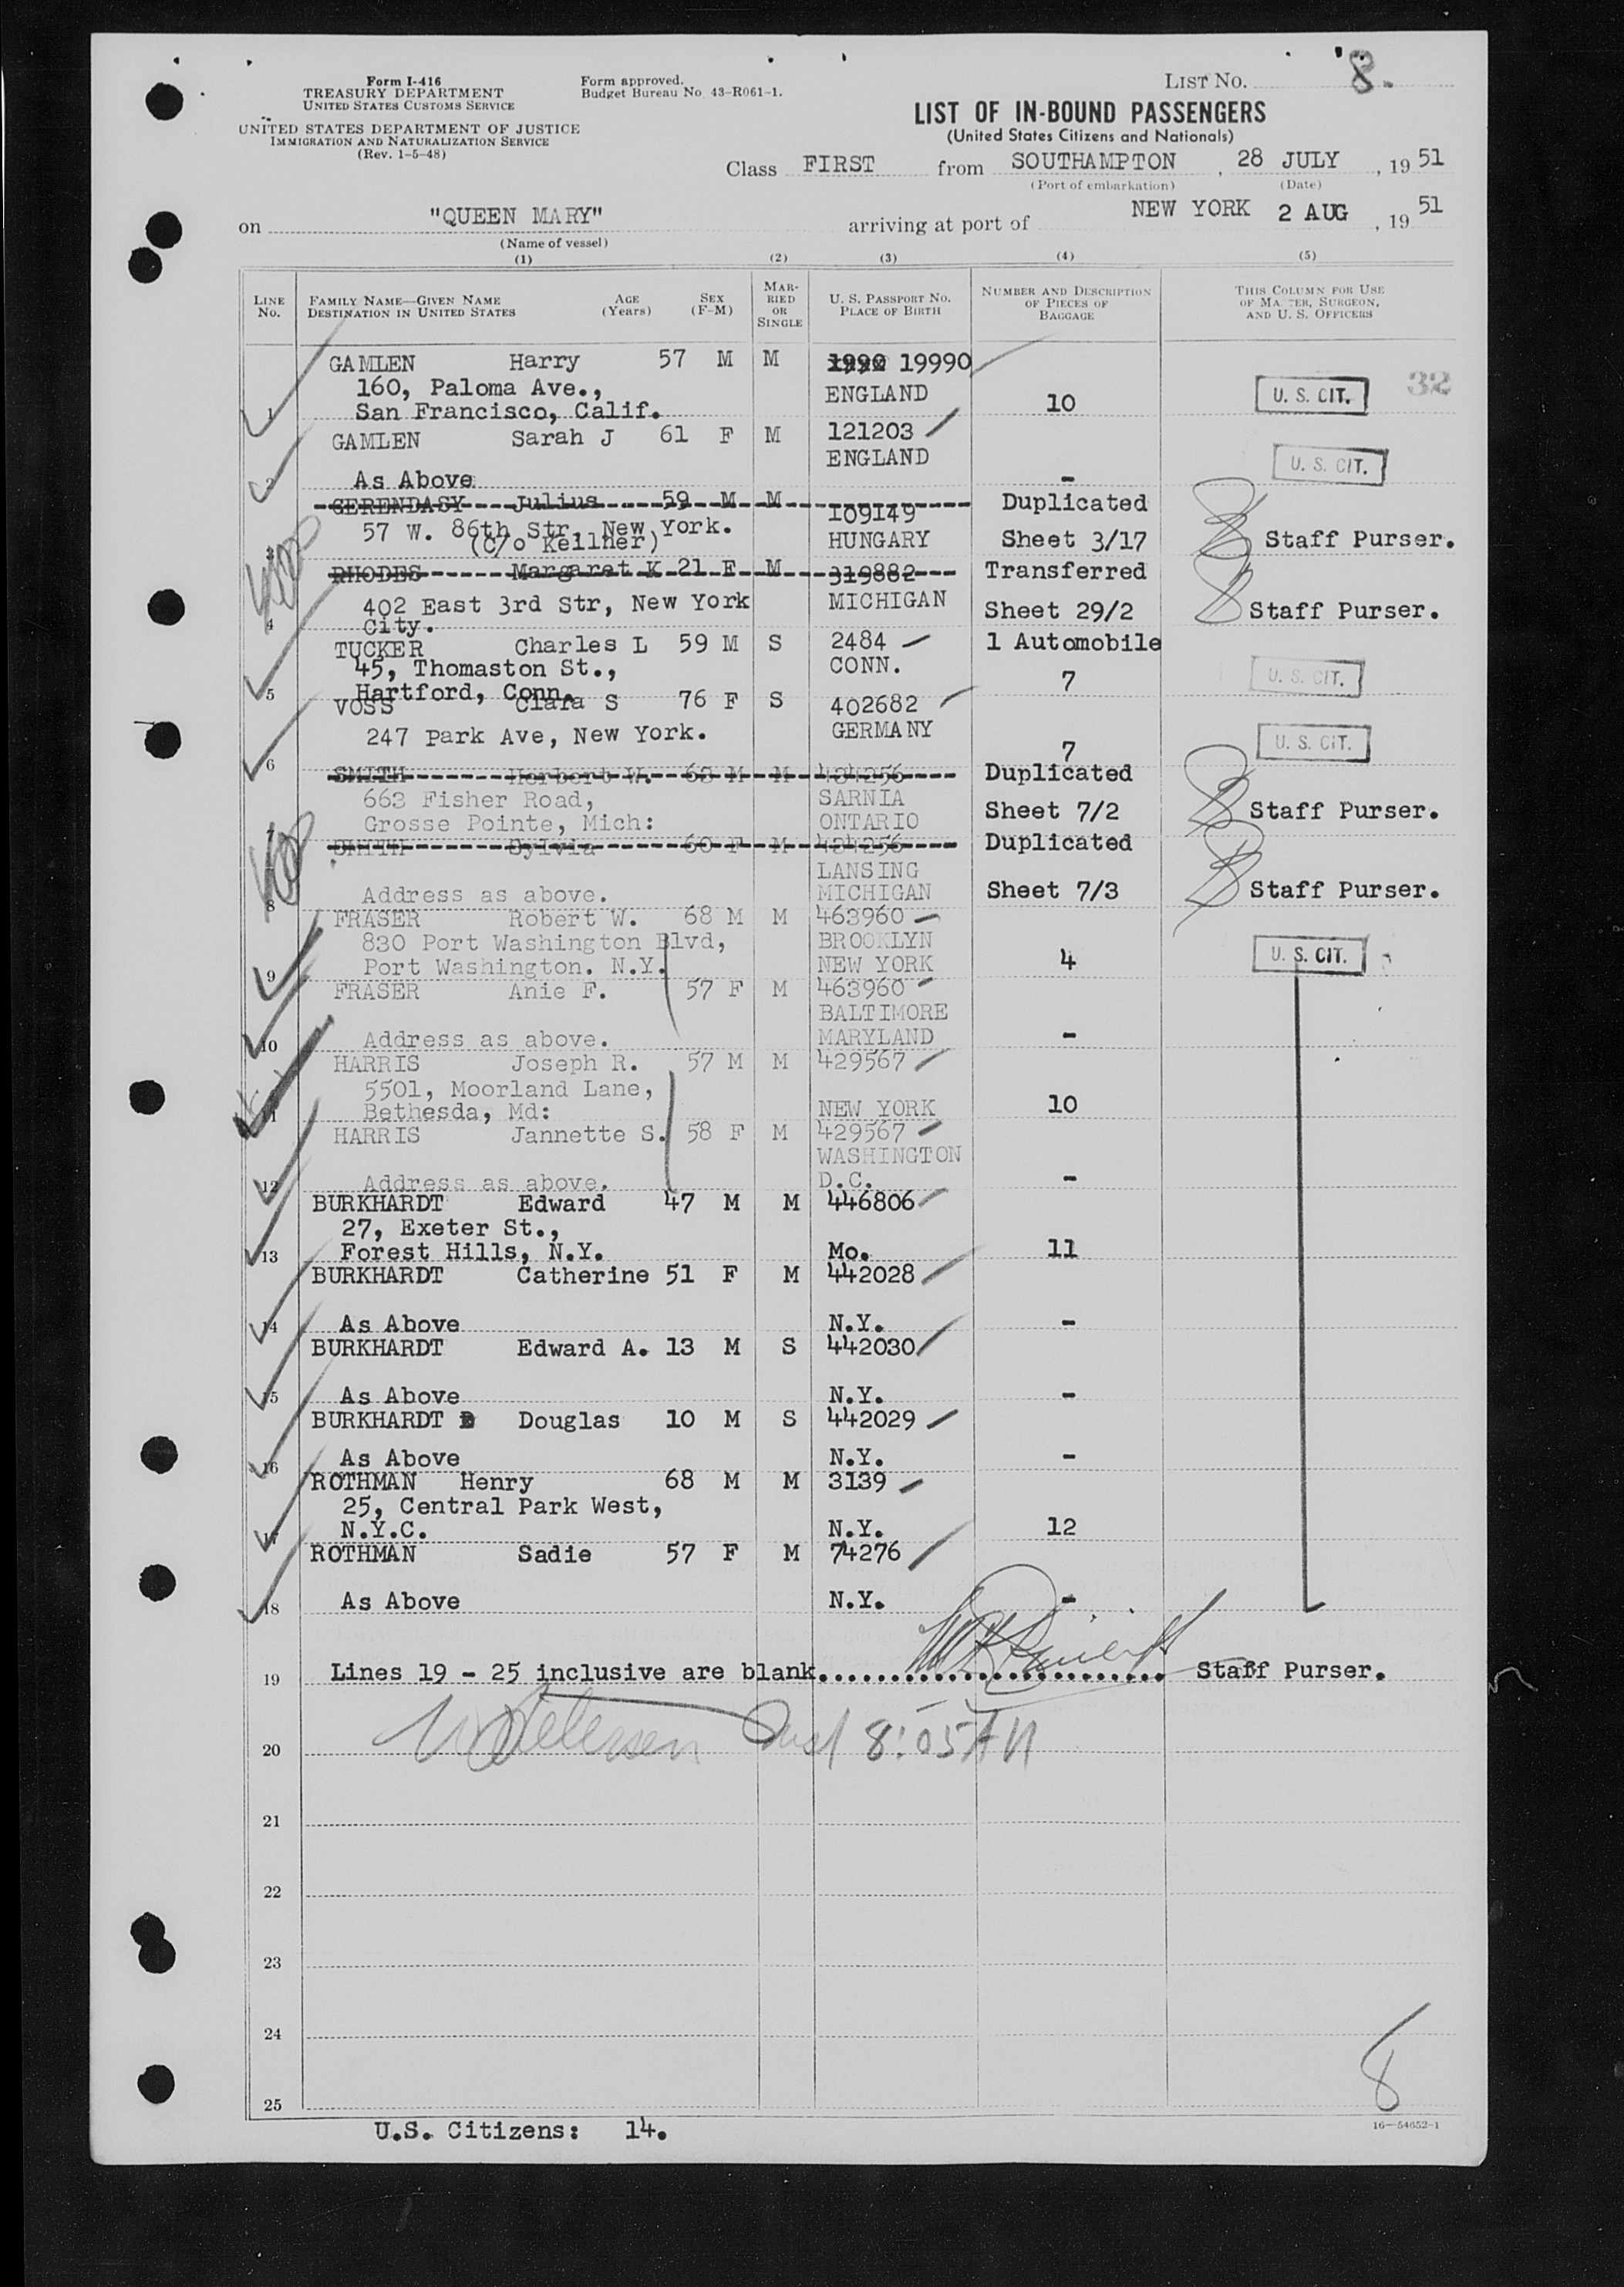 Form I-416
TREASURY DEPARTMENT
UNITED STATES CUSTOMS SERVICE
Form approved.
Budget Bureau No. 43-R061-1.
LIST NO. 8.
UNITED STATES DEPARTMENT OF JUSTICE
IMMIGRATION AND NATURALIZATION SERVICE
(Rev. 1-5-48)
LIST OF IN-BOUND PASSENGERS
(United States Citizens and Nationals)
Class FIRST from SOUTHAMPTON, 28 JULY, 19 51
(Port of embarkation) (Date)
on "QUEEN MARY" arriving at port of NEW YORK 2 AUG, 19 51
(Name of vessel)
(1) (2) (3) (4) (5)
LINE NO. FAMILY NAME—GIVEN NAME DESTINATION IN UNITED STATES AGE (Years) SEX (F-M) MARRIED OR SINGLE U. S. PASSPORT NO. PLACE OF BIRTH NUMBER AND DESCRIPTION OF PIECES OF BAGGAGE THIS COLUMN FOR USE OF MASTER, SURGEON, AND U. S. OFFICERS
GAMLEN Harry 57 M M 1990 19990
160, Paloma Ave., ENGLAND U. S. CIT. 32
1 San Francisco, Calif. 10
GAMLEN Sarah J 61 F M 121203
ENGLAND U. S. CIT.
2 As Above -
GERENDASY Julius 59 M M 109149 Duplicated
57 W. 86th Str, New York.
3 (c/o Kellner) HUNGARY Sheet 3/17 Staff Purser.
RHODES Margaret K 21 F M 319882 Transferred
402 East 3rd Str, New York MICHIGAN Sheet 29/2 Staff Purser.
4 City.
TUCKER Charles L 59 M S 2484 1 Automobile
45, Thomaston St., CONN. 7 U. S. CIT.
5 Hartford, Conn.
VOSS Clara S 76 F S 402682
247 Park Ave, New York. GERMANY 7 U. S. CIT.
6
SMITH Herbert W. 63 M M 434256 Duplicated
663 Fisher Road, SARNIA Sheet 7/2 Staff Purser.
7 Grosse Pointe, Mich: ONTARIO
SMITH Sylvia 60 F M 434256 Duplicated
LANSING
8 Address as above. MICHIGAN Sheet 7/3 Staff Purser.
FRASER Robert W. 68 M M 463960
830 Port Washington Blvd, BROOKLYN
9 Port Washington. N.Y. NEW YORK 4 U. S. CIT.
FRASER Anie F. 57 F M 463960
BALTIMORE
10 Address as above. MARYLAND -
HARRIS Joseph R. 57 M M 429567
5501, Moorland Lane,
11 Bethesda, Md: NEW YORK 10
HARRIS Jannette S. 58 F M 429567
WASHINGTON
12 Address as above. D.C. -
BURKHARDT Edward 47 M M 446806
27, Exeter St.,
13 Forest Hills, N.Y. Mo. 11
BURKHARDT Catherine 51 F M 442028
14 As Above N.Y. -
BURKHARDT Edward A. 13 M S 442030
15 As Above N.Y. -
BURKHARDT Douglas 10 M S 442029
16 As Above N.Y. -
ROTHMAN Henry 68 M M 3139
25, Central Park West,
17 N.Y.C. N.Y. 12
ROTHMAN Sadie 57 F M 74276
18 As Above N.Y. -
19 Lines 19 - 25 inclusive are blank........................ Staff Purser.
20 8:05 AM
21
22
23
24
8
25
U.S. Citizens: 14.
16—54652-1